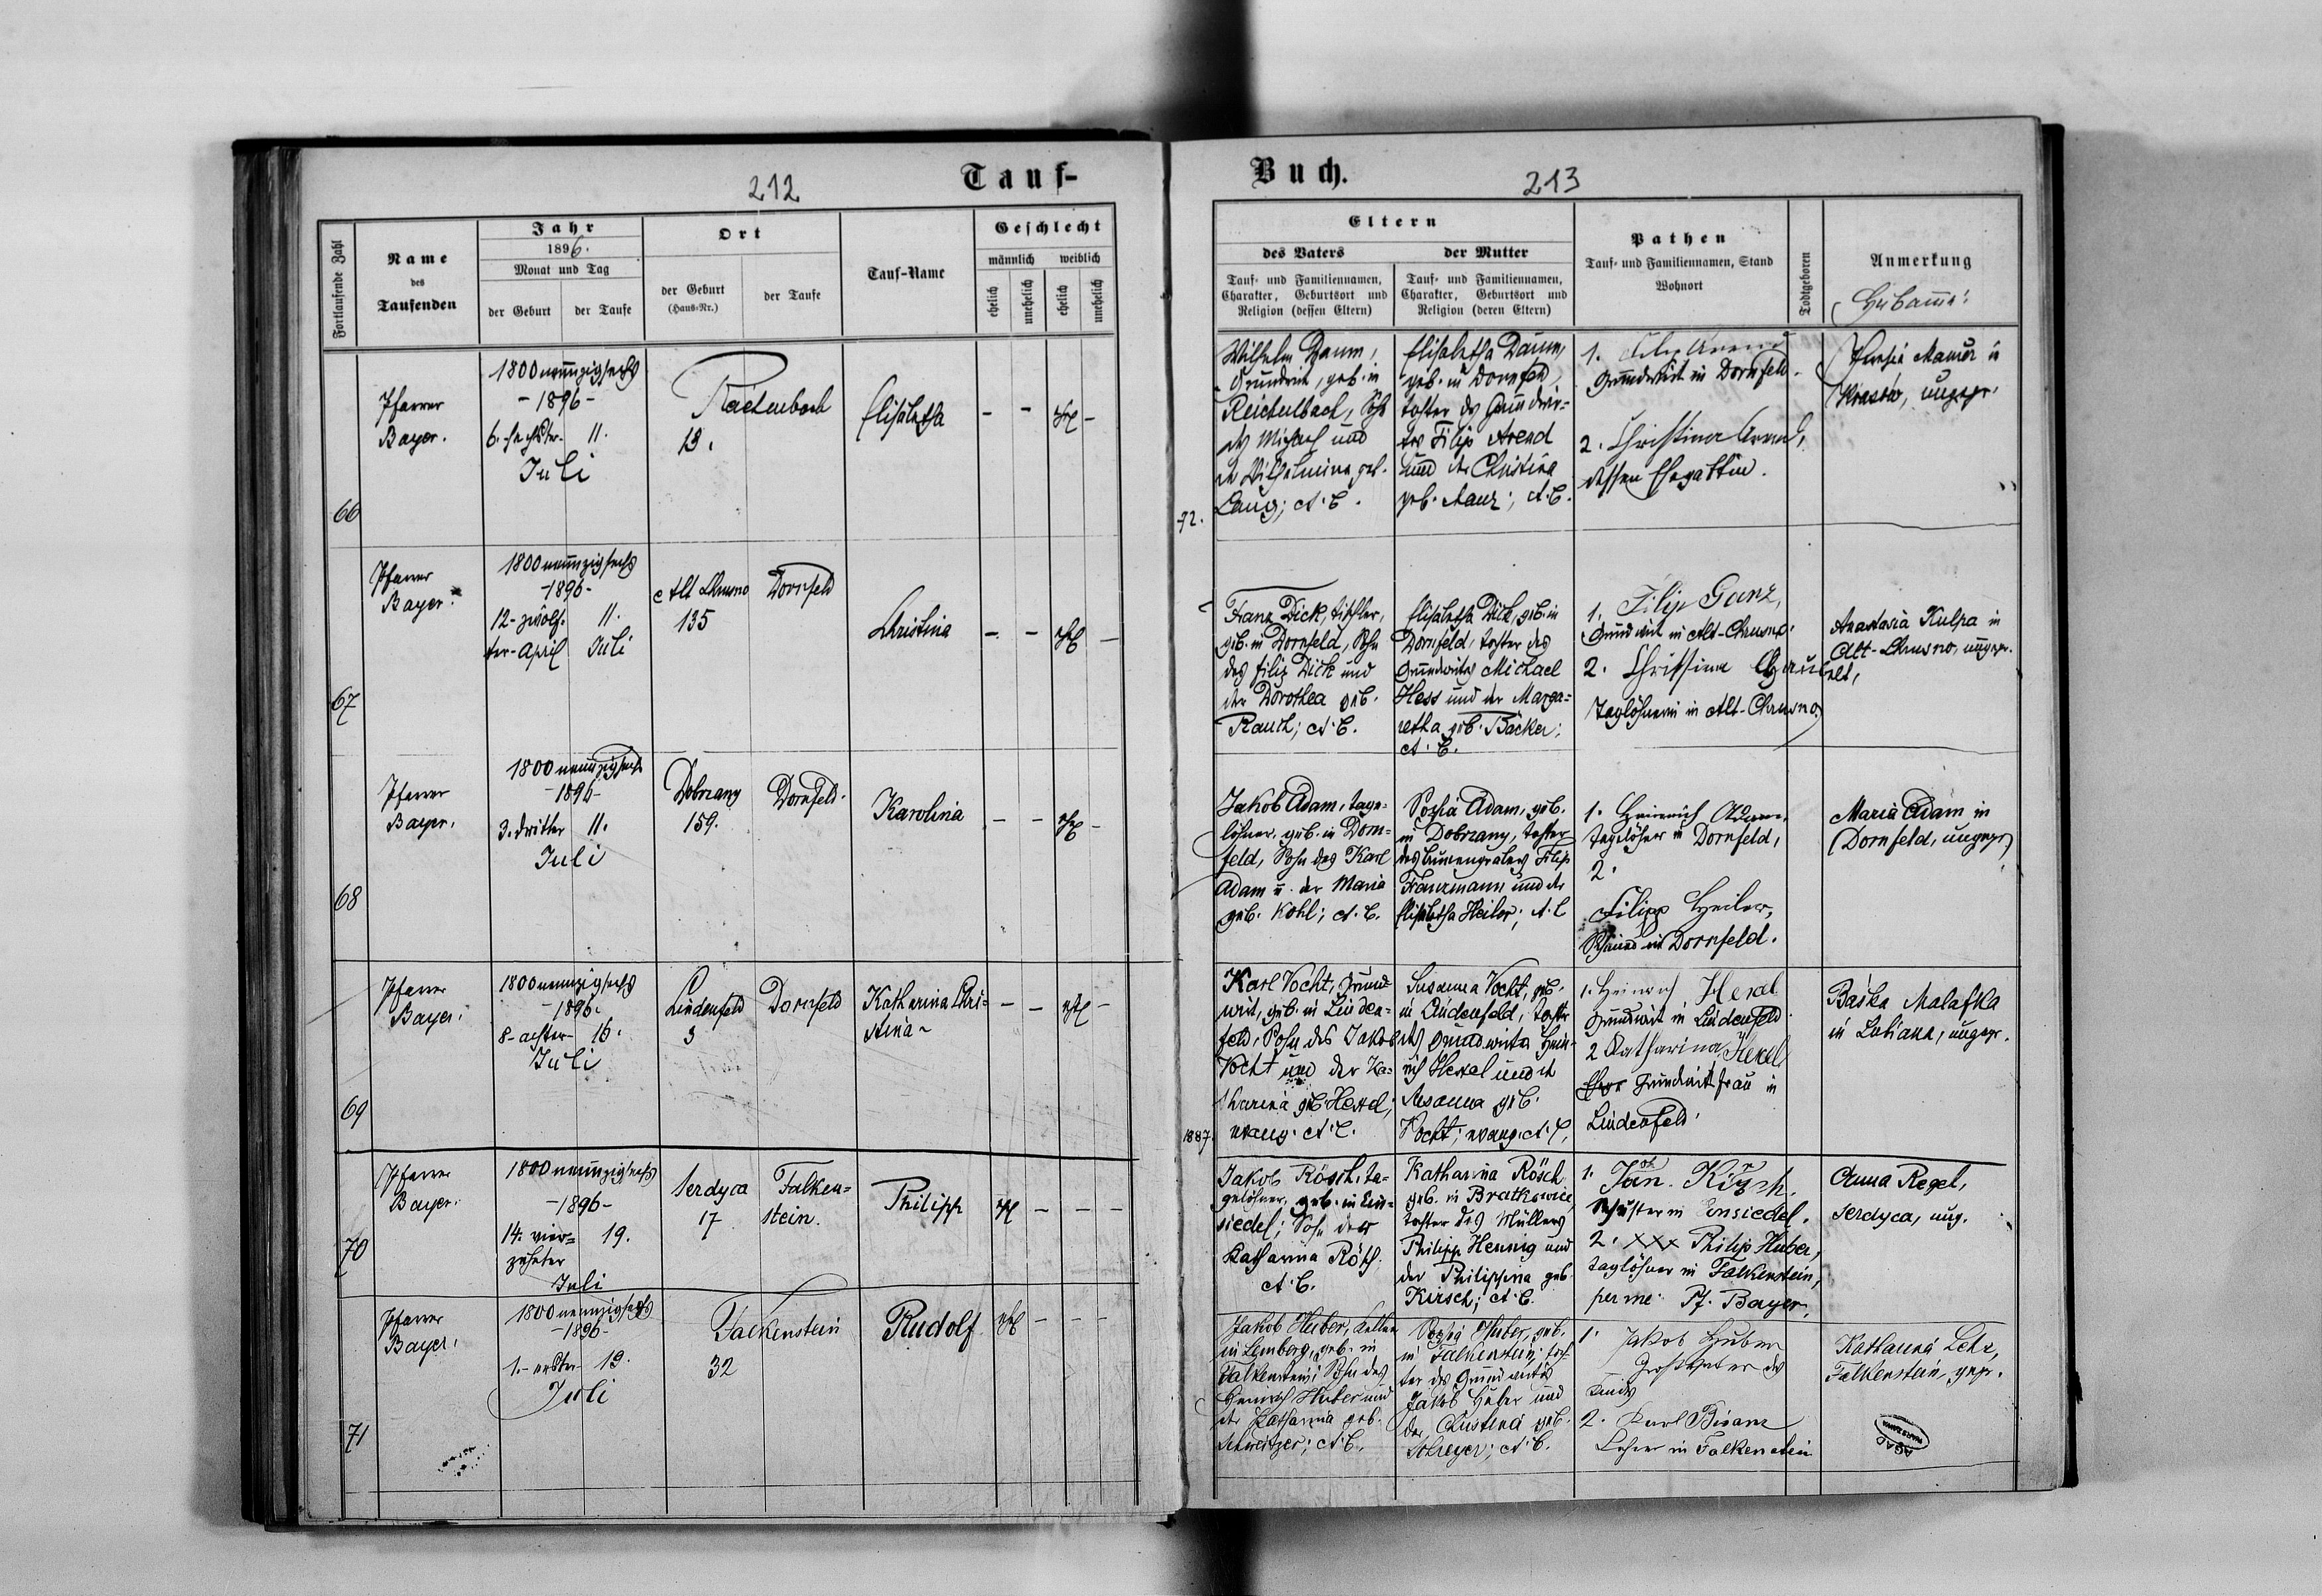 212
Tauf-
Fortlaufende Zahl
Name
des
Taufenden
Jahr
1896.
Monat und Tag
der Geburt
der Taufe
Ort
der Geburt
(Haus-Nr.)
der Taufe
Tauf-Name
Geschlecht
männlich
weiblich
ehelich
unehelich
ehelich
unehelich
66
Pfarrer
Bayer.
1800 neunzigsechs
-1896-
6. sechster 11.
Juli
Reichenbach
13.
Elisabetha
- - ehel -
67
Pfarrer
Bayer.
1800 neunzigsechs
-1896-
12-zwölf- 11.
ter-April Juli
Alt Chrusno Dornfeld
135
Christina
- - ehel -
68
Pfarrer
Bayer.
1800 neunzigsechs
-1896-
3. dritter 11.
Juli
Dobrzany Dornfeld.
159.
Karolina
- - ehel -
69
Pfarrer
Bayer.
1800 neunzigsechs
-1896.
8-achter- 16.
Juli
Lindenfeld Dornfeld
3
Katharina Chri-
stina
- - ehel -
70
Pfarrer
Bayer.
1800 neunzigsechs
-1896-
14. vier= 19.
zehnter
Juli
Serdyca Falken=
17 stein.
Philipp
ehel - - -
71
Pfarrer
Bayer.
1800 neunzigsechs
-1896-
1.-erster- 19.
Juli
Falkenstein
32
Rudolf
ehel - - -
Buch.
213
Eltern
des Vaters
Tauf- und Familiennamen,
Charakter, Geburtsort und
Religion (dessen Eltern)
der Mutter
Tauf- und Familiennamen,
Charakter, Geburtsort und
Religion (deren Eltern)
Pathen
Tauf- und Familiennamen, Stand
Wohnort
Todtgeboren
Anmerkung
Hebamme:
72.
Wilhelm Daum,
Grundwirt, geb. in
Reichenbach, Sohn
des Michael und
der Wilhelmina geb.
Lang; A. C.
Elisabetha Daum,
geb. in Dornfeld,
Tochter des Grundwir=
tes Filip Arend
und der Christina
geb. Manz; A. C.
1. Filip Arend
Grundwirt in Dornfeld.
2. Christina Arend,
dessen Ehegattin.
in
Krasów, ungepr.
Franz Dick, Tischler,
geb. in Dornfeld, Sohn
des Filip Dick und
der Dorothea geb.
Rauch; A. C.
Elisabetha Dick, geb. in
Dornfeld, Tochter des
Grundwirtes Michael
Hess und der Marga=
retha geb. Bäcker;
A. C.
1. Filip Ganz,
Grundwirt in Alt-Chrusno.
2. Christina
Taglöhnerin in Alt-Chrusno
Anastasia Kulpa in
Alt-Chrusno, ungepr.
Jakob Adam, Tage=
löhner, geb. in Dorn=
feld, Sohn des Karl
Adam u. der Maria
geb. Kohl; A. C.
Sophia Adam, geb.
in Dobrzany, Tochter
des Brunnengräbers Filip
Franzmann und der
Elisabetha Heiler; A. C
1. Heinrich Adam,
Taglöhner in Dornfeld,
2.
Filipp Heiler,
Schmied in Dornfeld.
Maria Adam in
Dornfeld, ungepr
1887.
Karl Vocht, Grund
wirt, geb. in Linden=
feld, Sohn des Jakob
Vocht und der Ka=
tharina geb. Hexel;
evang. A. C.
Susanna Vocht, geb.
in Lindenfeld, Tochter
des Grundwirts Hein-
rich Hexel und der
Susanna geb.
Vocht; evang. A. C.
1. Heinrich Hexel
Grundwirt in Lindenfeld
2 Katharina Hexel
Grundwirtsfrau in
Lindenfeld.
Baśka Malafka
in Lubiana, ungepr.
Jakob Rösch, Ta-
gelöhner, geb. in Ein=
siedel; Sohn der
Katharina Rösch.
A. C.
Katharina Rösch
geb. in Bratkowice,
Tochter des Müllers
Philipp Hennig und
der Philippina geb.
Kirsch; A. C.
1. Joh. Kirsch,
Schuster in Einsiedel.
2. xxx Philip Huber,
Taglöhner in Falkenstein,
per me: Pf. Bayer.
Anna Regel,
Serdyca, ung.
Jakob Huber, Kellner
in Lemberg, geb. in
Falkenstein; Sohn des
Heinrich Huber und
der Katharina geb.
Schweitzer; A. C.
Sophia Huber, geb.
in Falkenstein, Toch
ter des Grundwirtes
Jakob Huber und
der Christina geb.
Schreyer; A. C.
1. Jakob Huber
Großvater des
Kindes
2. Karl Bisanz
Lehrer in Falkenstein
Katharina
Falkenstein, gepr.
AGAD